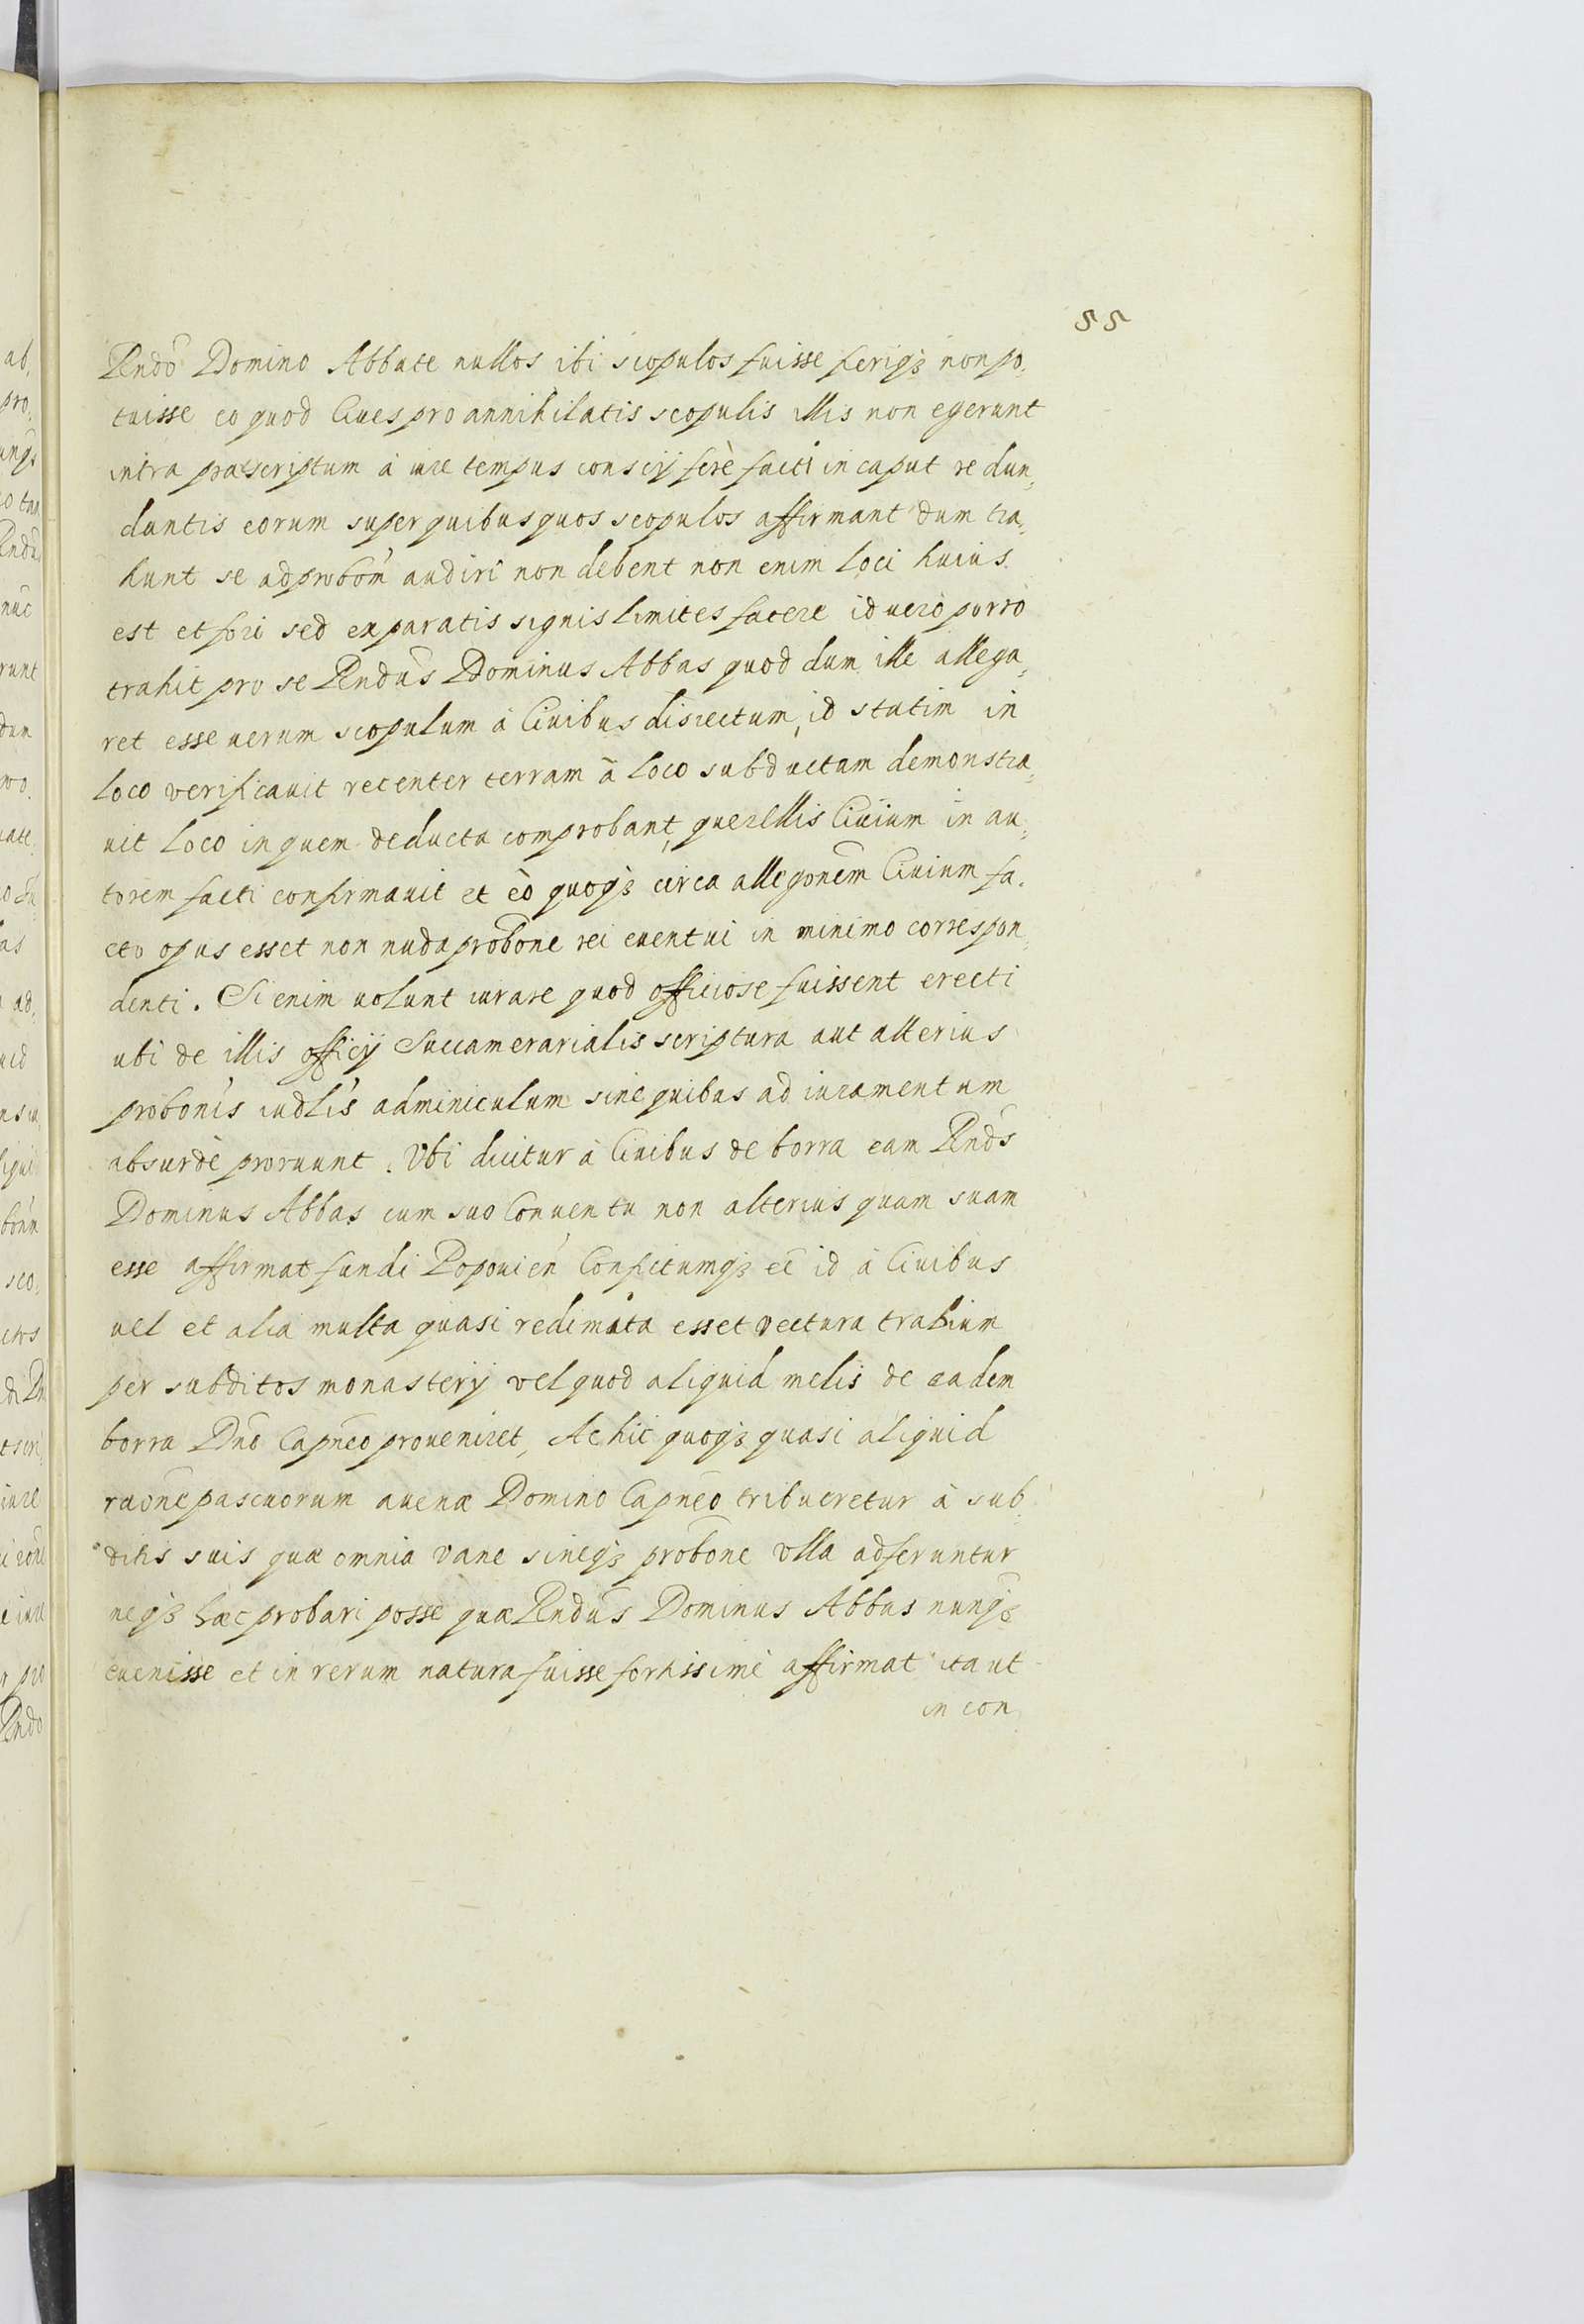 55
Rndo Domino Abbate nullos ibi scopulos fuisse feriq3 non po,
tuisse eo quod Ciues pro annihilatis scopulis illis non egerunt
intra præscriptum à iure tempus conscij ferè facti in caput redun,
dantis eorum super quibus quos scopulos affirmant dum tra,
hunt se ad probom audiri non debent non enim loci huius
est et fori sed ex paratis signis limites facere id uero porro
trahit pro se Rndus Dominus Abbas quod dum ille allega,
ret esse uerum scopulum à Ciuibus disiectum, id statim in
loco verificauit recenter terram à loco subductam demonstra,
uit loco in quem deducta comprobant, querellis Ciuium in au,
torem facti confirmauit et eò quoq3 circa allegonem Ciuium fa,
cto opus esset non nuda probone rei euentui in minimo correspon,
denti. Si enim uolunt iurare quod officiose fuissent erecti
ubi de illis officij Succamerarialis scriptura aut alterius
probonis iudlis adminiculum sine quibus ad iuramentum
absurdè proruunt. Vbi dicitur à Ciuibus de borra eam Rnds
Dominus Abbas cum suo Conuentu non alterius quam suam
esse affirmat fundi Popouien Confictumq3 ee id à Ciuibus
uel et alia multa quasi redimata esset vectura trabium
per subditos monasterij vel quod aliquid melis de eadem
borra Dno Capneo proueniret, Ac hic quoq3 quasi aliquid
raone pascuorum auenæ Domino Capneo tribueretur à sub,
ditis suis quæ omnia vane sineq3 probone vlla adferuntur
neq3 hæc probari posse quæ Rndus Dominus Abbas nunq3
euenisse et in rerum natura fuisse fortissimè affirmat ita ut
in con